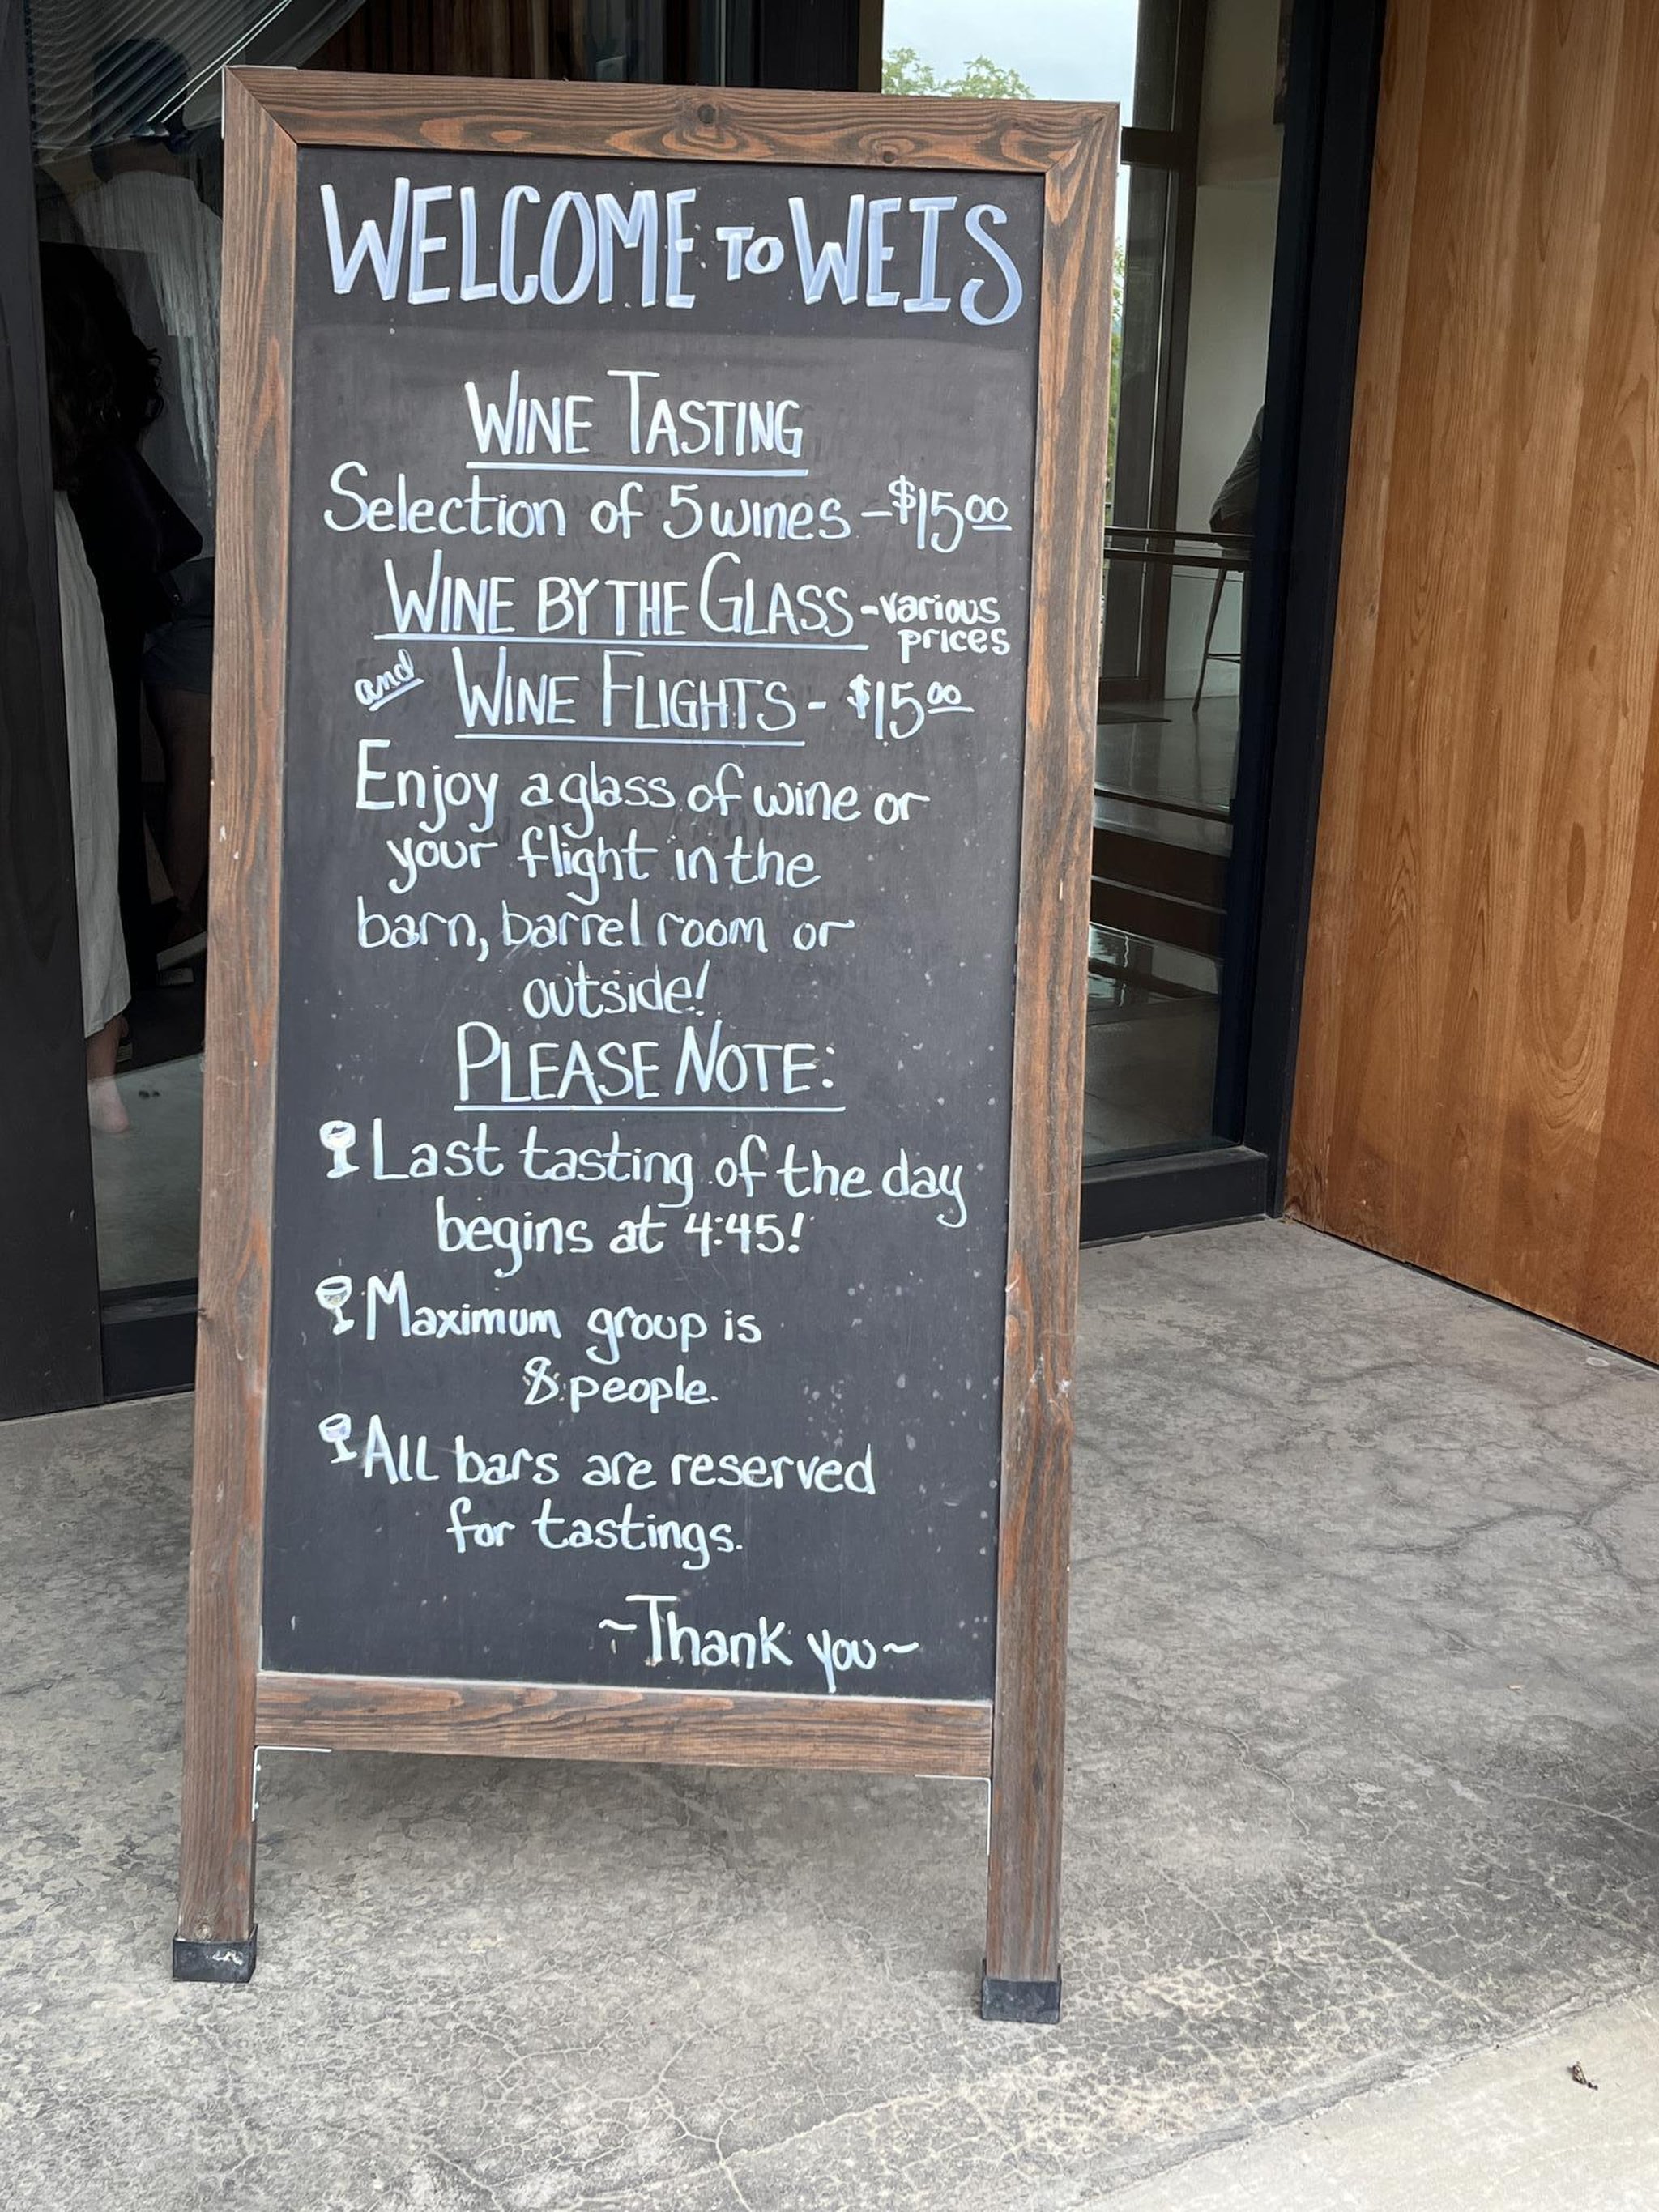 WELCOME TO WEIS
WINE TASTING
Selection of 5 wines - $15.00
WINE BY THE GLASS - various
prices
and WINE FLIGHTS - $15.00
Enjoy a glass of wine or
your flight in the
barn, barrel room or
outside!
PLEASE NOTE:
Last tasting of the day
begins at 4:45!
Maximum group is
8 people.
All bars are reserved
for tastings.
~Thank you~